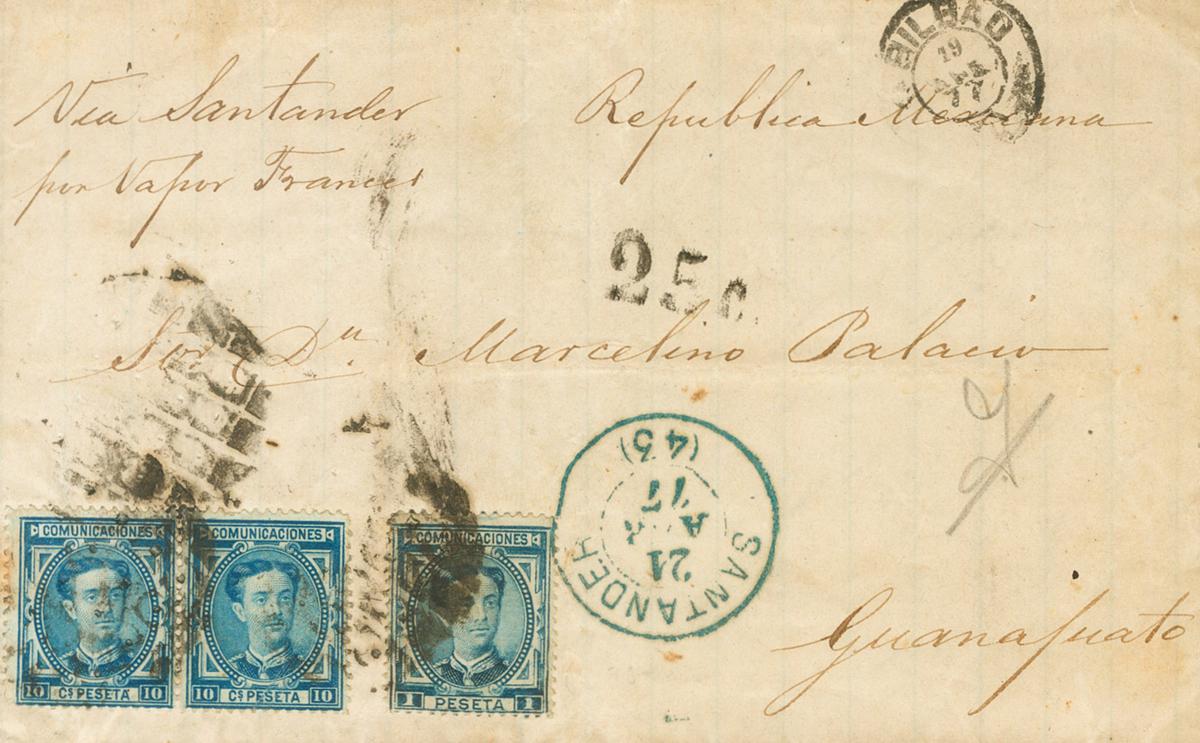 BILBAO
19
77
Via Santander
Republica Mexicana
por Vapor Frances
25 c.
Sor Dn Marcelino Palacio
SANTANDER
21
77
(43)
COMUNICACIONES
10 Cs PESETA 10
COMUNICACIONES
10 Cs PESETA 10
COMUNICACIONES
1 PESETA 1
Guanajuato